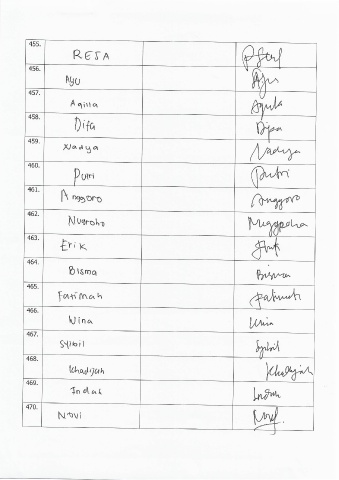 455. RESA
456. Ayu Ayu
457. Aqilla Aquila
458. Difa Dipa
459. Nadya Nadya
460. Putri Putri
461. Anggoro Anggoro
462. Nugroho
463. Erik
464. Bisma Bisma
465. Fatimah Fatimah
466. Wina Wina
467. Sybil Sybil
468. Khadijah Khadijah
469. Indah Indah
470. Novi